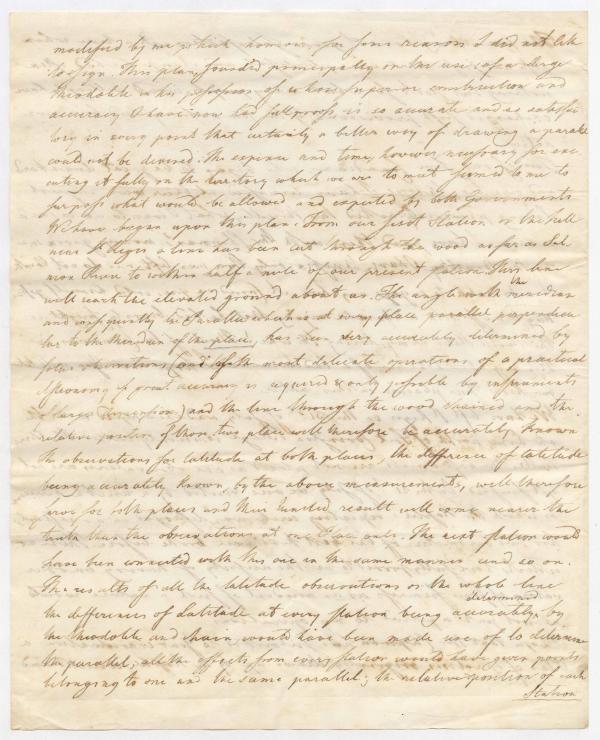 modified by me, which however for some reasons I did not like
to sign. This plan, founded principally on the use of a large
theodolite in his possession of whose superior construction and
accuracy I have now had full proofs is so accurate and so satisfac
tory in every point that certainly a better way of drawing a parallel
could not be devised. The expence and time, however, necessary for exe
cuting it fully on the territory which we are to meet seemed to me to
surpass what would be allowed and expected by both Governments
We have began upon this plan. From our first Station on the hill
near St Regis a line has been cut through the wood as far as Sal
mon River to within half a mile of our present station. This line
will reach the elevated ground about us. The angle with the meridian
and consequently the Parallel which is at every place parallel perpendicu
lar to the Meridian of the place, has been very accurately determined by
solar observations (one of the most delicate operations of practical
Astronomy if great accuracy is required & only possible by instruments
of large Dimension.) and the line through the wood chained and the
relative position of those two places will therefore be accurately known
the observations for latitude at both places, the difference of latitude
being accurately known, by the above measurements, will therefore
serve for both places and their united result will come nearer the
truth than the observations at one place only. The next station would
have been connected with this one in the same manner and so on.
The results of all the latitude observations on the whole line
the differences of Latitude at every station being accurately determined by
the theodolite and chain, would have been made use of to determine
the parallel; all the offsets from every station would have given points
belonging to one and the same parallel; the relative position of each
Station